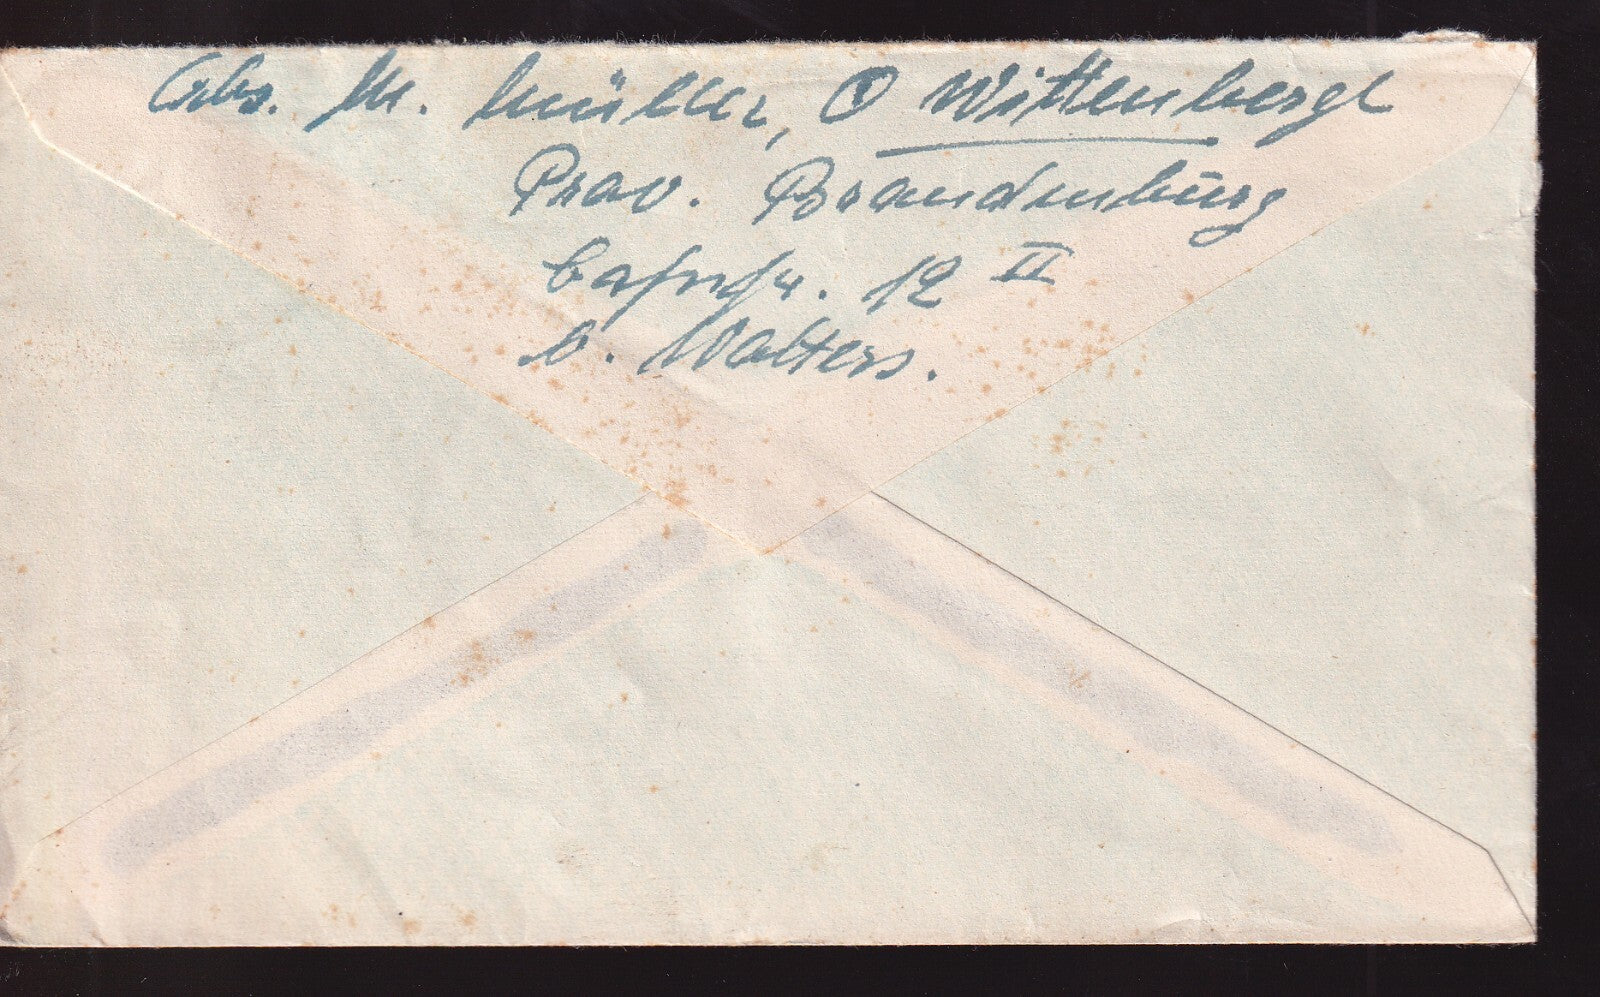 Abs. M. Müller, O Wittenberge
Prov. Brandenburg
Bahnstr. 12 II
b. Walters.